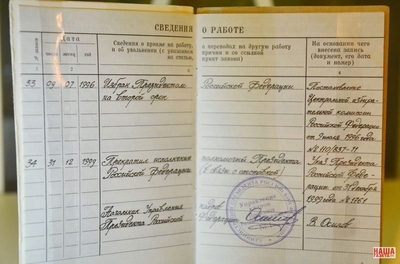 СВЕДЕНИЯ
О РАБОТЕ
Дата
число
месяц
год
Сведения о приеме на работу,
о переводе на другую работу
и об увольнении (с указанием
причин и со ссылкой
на статью,
пункт закона)
На основании чего
внесена запись
(документ, его дата
и номер)
1
2
3
4
33 09 07 1996 Избран Президентом
Российской Федерации
на второй срок
Постановление
Центральной избира-
тельной комиссии
Российской Федерации
от 9 июля 1996 года
№ 110/837-II
34 31 12 1999 Прекратил исполнение
полномочий Президента
Российской Федерации
(в связи с отставкой)
Указ Президента
Российской Феде-
рации от 31 декабря
1999 № 1761
Начальник Управления
кадров
Президента Российской
Федерации
В. Осипов
НАША